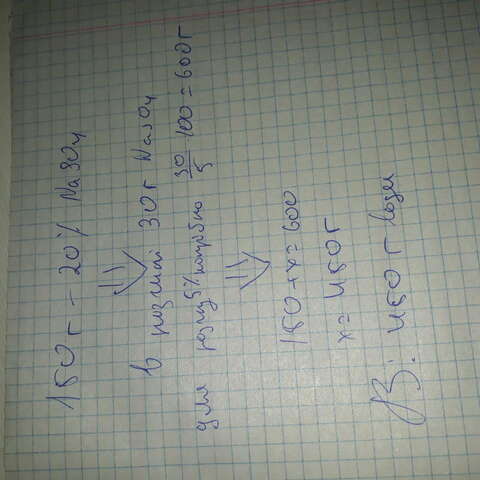 150г – 20% NaSO4
в розчині 30г NaSO4
для розчу 5% потрібно 30/5 · 100 = 600г
150 + x = 600
x = 450г
В: 450г води